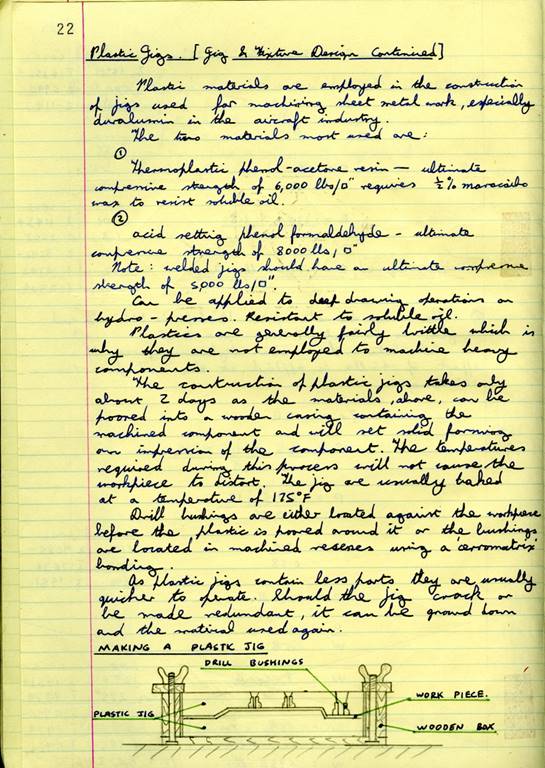 22
Plastic Jigs. [Jig & Fixture Design Continued]
Plastic materials are employed in the construction
of jigs used for machining sheet metal work, especially
duralumin in the aircraft industry.
The two materials most used are:
①
Thermoplastic phenol-acetone resin — ultimate
compressive strength of 6,000 lbs/□" requires ½% maracaibo
wax to resist soluble oil.
②
acid setting phenol formaldehyde - ultimate
compressive strength of 8000 lbs/□"
Note: welded jigs should have an ultimate compressive
strength of 5,000 lbs/□".
Can be applied to deep drawing operations on
hydro-presses. Resistant to soluble oil.
Plastics are generally fairly brittle which is
why they are not employed to machine heavy
components.
The construction of plastic jigs takes only
about 2 days as the materials, above, can be
poored into a wooden casing containing the
machined component and will set solid forming
an impression of the component. The temperatures
required during this process will not cause the
workpiece to distort. The jig are usually baked
at a temperature of 175°F
Drill bushings are either located against the workpiece
before the plastic is poored around it or the bushings
are located in machined reseses using a 'cerromatrix'
bonding.
As plastic jigs contain less parts they are usually
quicker to operate. Should the jig crack or
be made redundant, it can be ground down
and the material used again.
MAKING A PLASTIC JIG
DRILL BUSHINGS
WORK PIECE.
PLASTIC JIG
WOODEN BOX